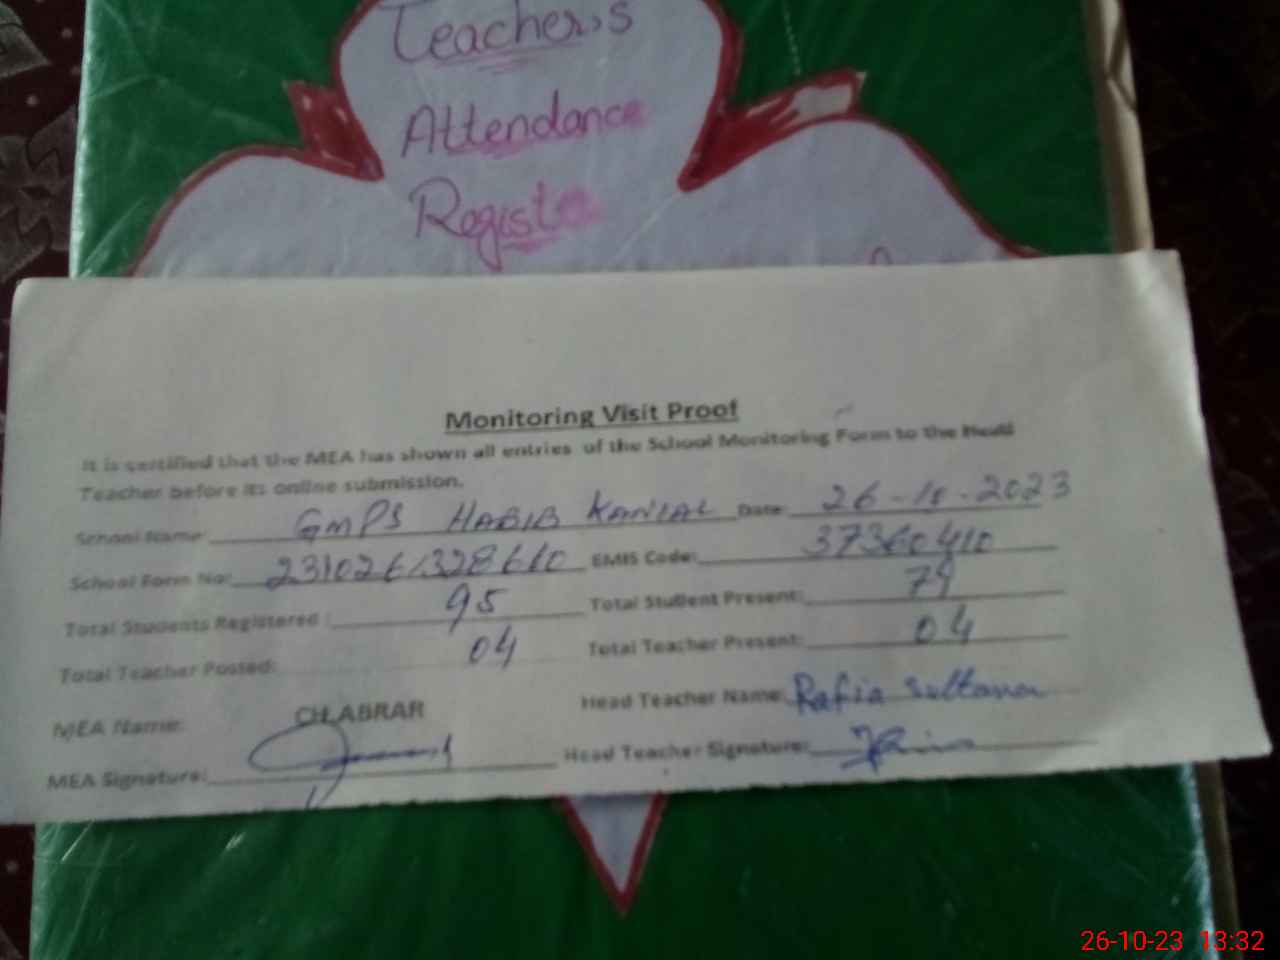 Teacher,s
Attendance
Register
Monitoring Visit Proof
It is certified that the MEA has shown all entries of the School Monitoring Form to the Head
Teacher before its online submission.
School Name: GMPS HABIB KANIAL Date: 26-10-2023
School Form No: 231026/328610 EMIS Code: 37360410
Total Students Registered : 95 Total Student Present: 79
Total Teacher Posted: 04 Total Teacher Present: 04
MEA Name: CH.ABRAR Head Teacher Name: Rafia Sultana
MEA Signature: Head Teacher Signature:
26-10-23 13:32